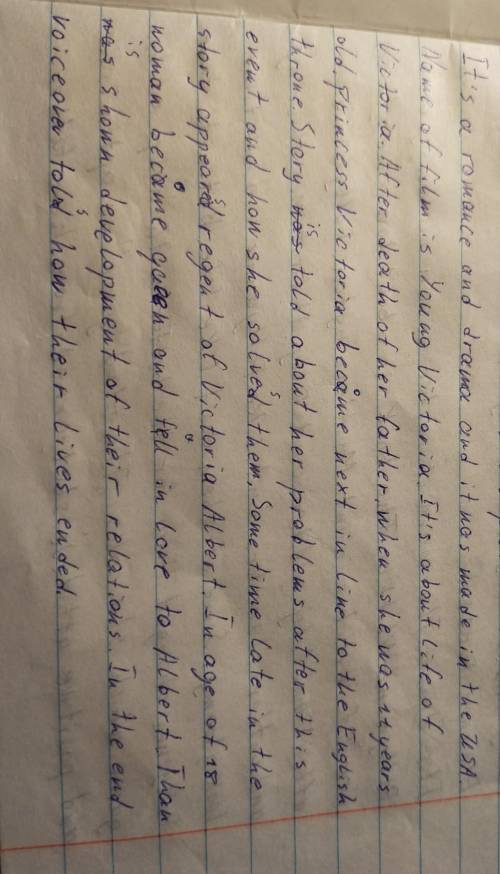 It's a romance and drama and it was made in the USA.
Name of film is Young Victoria. It's about life of
Victoria. After death of her father, when she was 11 years
old, Princess Victoria became next in line to the English
throne. Story is told about her problems after this
event and how she solves them. Some time late in the
story appears regent of Victoria Albert. In age of 18
woman became queen and fell in love to Albert. Than
is shown development of their relations. In the end
voiceover tolds how their lives ended